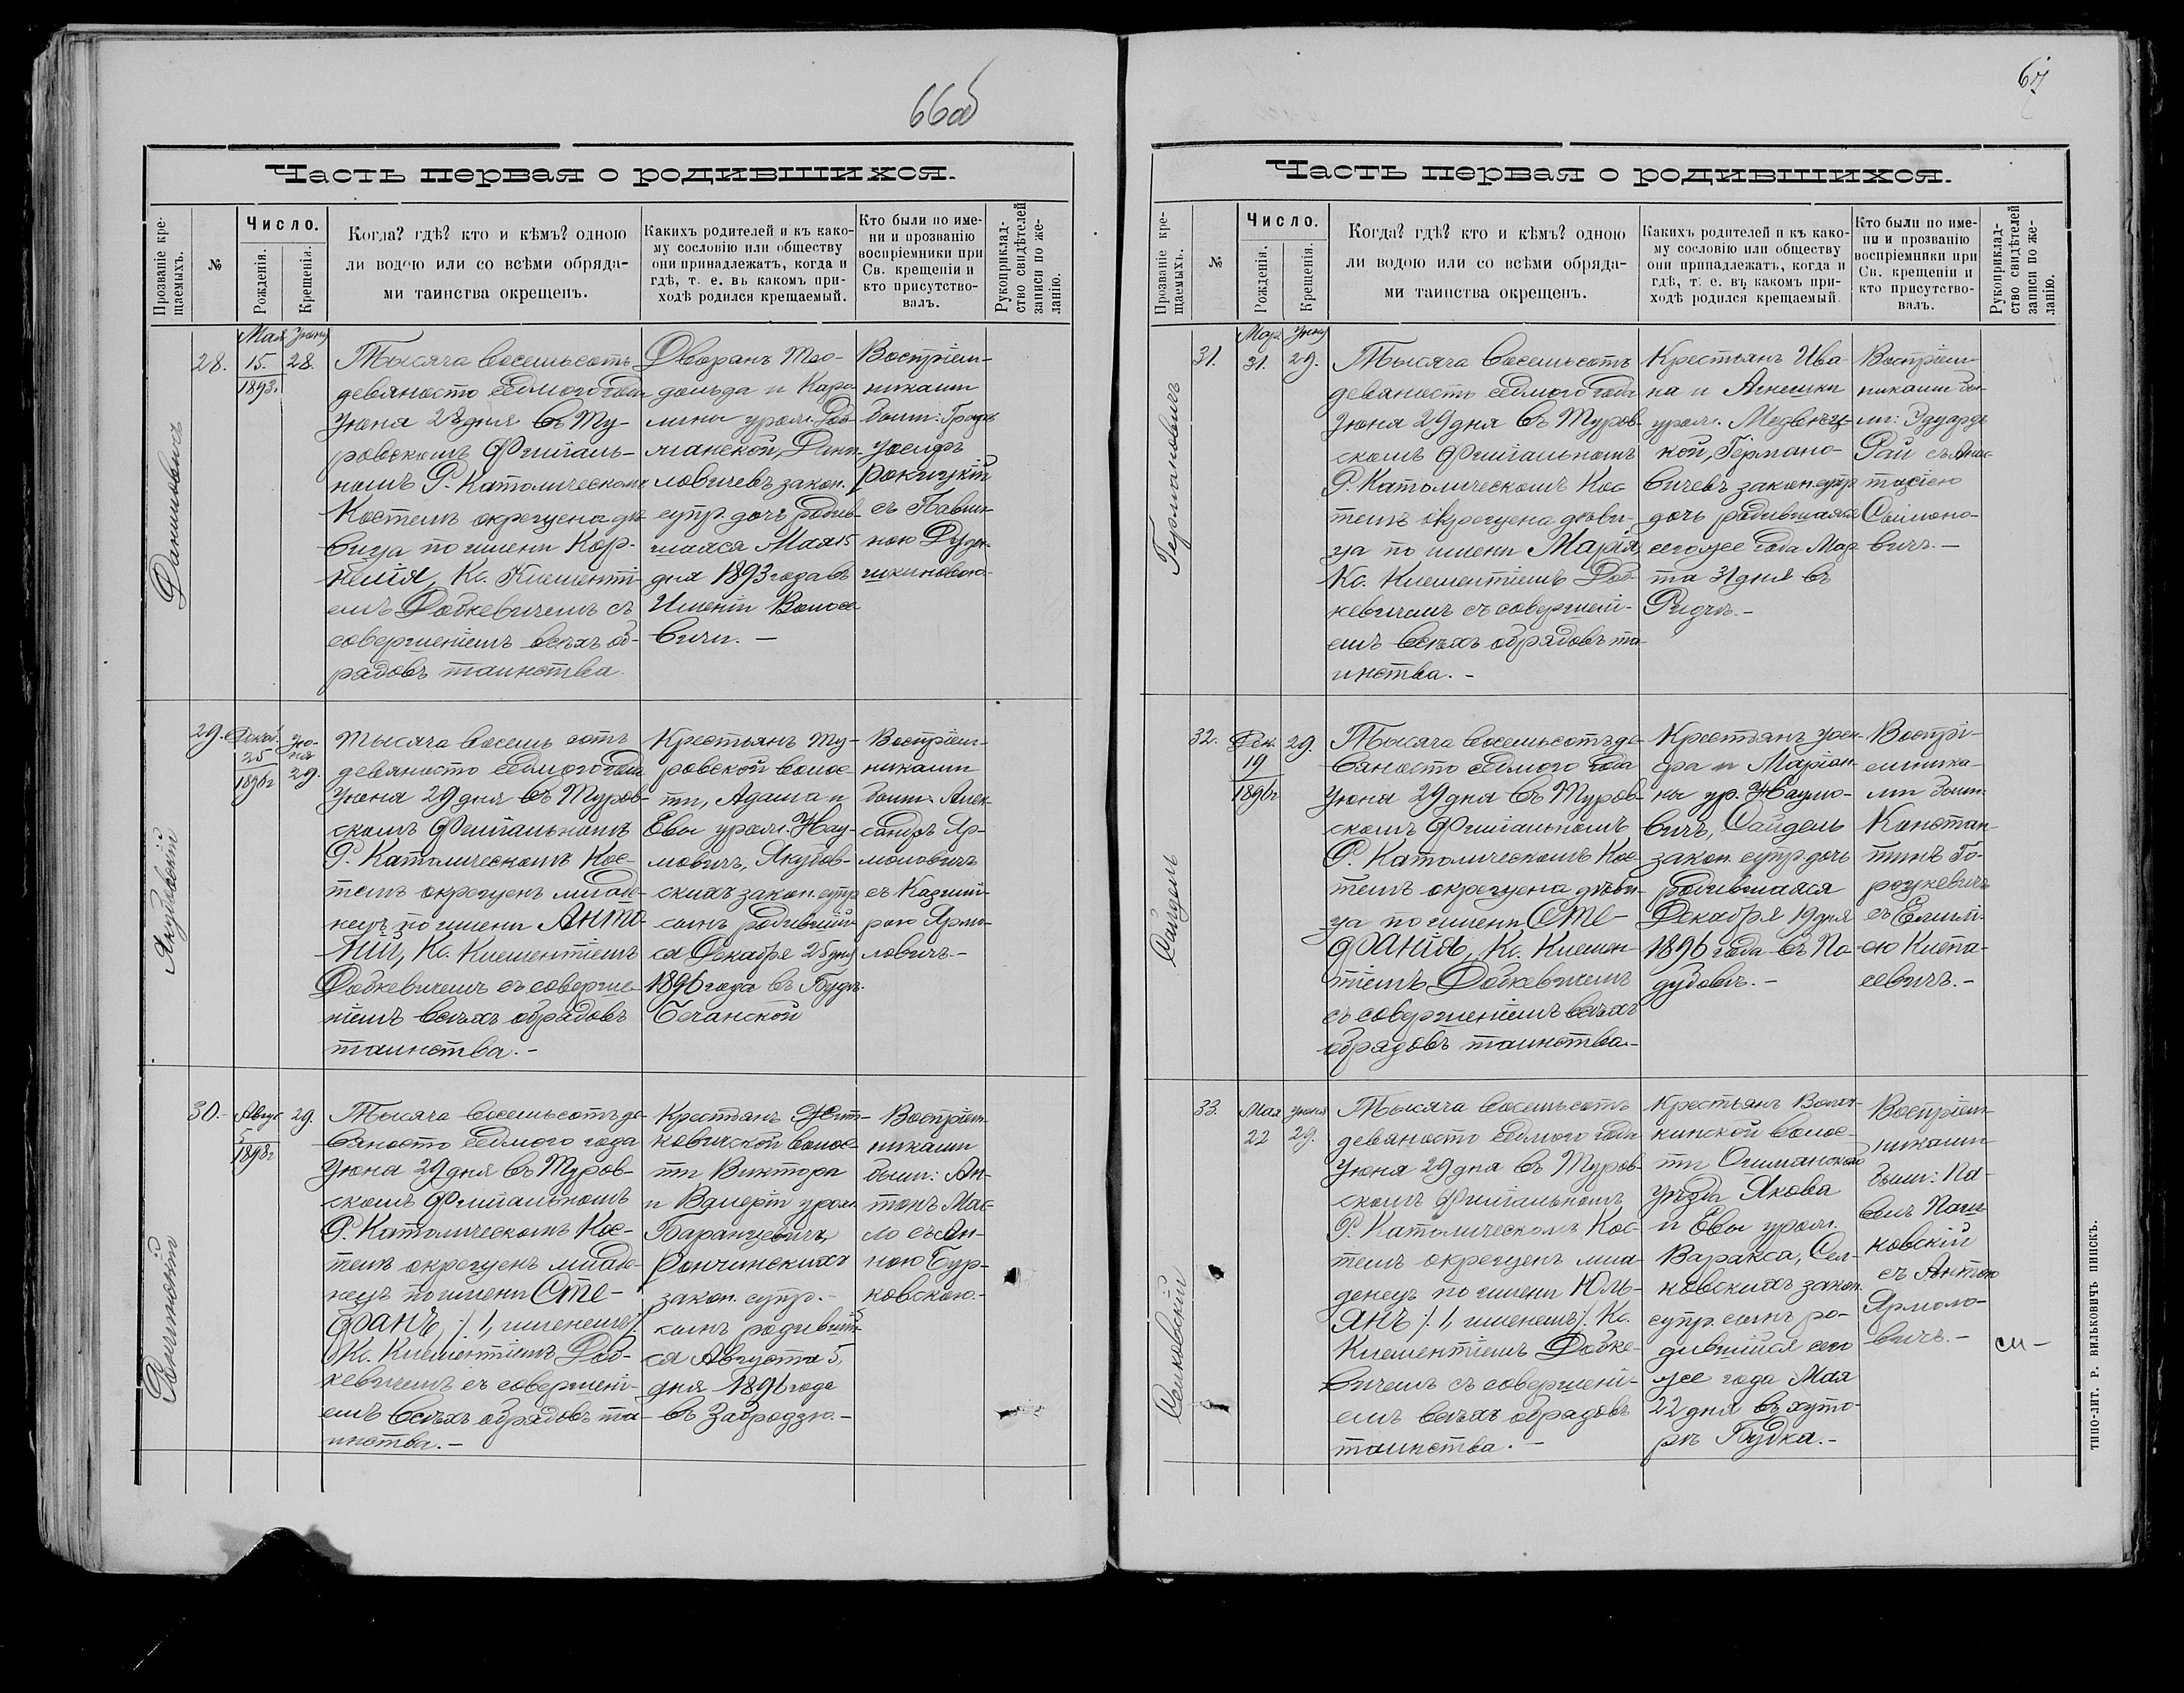 66об
Часть первая о родившихся.
Прозваніе кре-
щаемыхъ.
№
Число.
Рожденія.
Крещенія.
Когда? гдѣ? кто и кѣмъ? одною
ли водою или со всѣми обряда-
ми таинства окрещенъ.
Какихъ родителей и къ како-
му сословію или обществу
они принадлежатъ, когда и
гдѣ, т. е. въ какомъ при-
ходѣ родился крещаемый.
Кто были по име-
ни и прозванію
воспріемники при
Св. крещеніи и
кто присутство-
валъ.
Рукоприклад-
ство свидѣтелей
записи по же-
ланію.
Даниловичъ
28.
Мая
15.
1893.
Іюня
28.
Тысяча восемьсотъ
девяносто седмого года
Іюня 28 дня въ Ту-
ровскомъ Филіаль-
номъ Р. Католическомъ
Костелѣ окрещена дѣ-
вица по имени Кор-
нелія, Кс. Клементі-
емъ Добкевичемъ съ
совершеніемъ всѣхъ об-
рядовъ таинства.
Дворянъ
дня 1893 года въ
Имѣніи
вичи. —
Воспріем-
никами
были:
Іосифъ
Рокицкій
Якубовскій
29.
Декаб.
25
1896 г
Ію-
ня
29.
Тысяча восемь сотъ
девяносто седмого года
Іюня 29 дня въ Туров-
скомъ Филіальномъ
Р. Католическомъ Кос-
телѣ окрещенъ младе-
нецъ по имени Анто-
ній, Кс. Клементіемъ
Добкевичемъ съ соверше-
ніемъ всѣхъ обрядовъ
таинства. —
Крестьянъ Ту-
ровской волос-
ти, Адама и
Евы урожд. Нау-
мовичъ, Якубов-
скихъ закон. супр.
сынъ родившій-
ся Декабря 25 дня
1896 года въ Будѣ-
Бечанской
Воспріем-
никами
были: Алек-
сандръ Яр-
моловичъ
съ Казими-
рою Ярмо-
ловичъ. —
30.
Авгус
5
1896 г
29.
Тысяча восемьсотъ де-
вяносто седмого года
Іюня 29 дня въ Туров-
скомъ Филіальномъ
Р. Католическомъ Кос-
телѣ окрещенъ младе-
нецъ по имени Сте-
фанъ, /: 1, именемъ :/
Кс. Клементіемъ Доб-
кевичемъ съ совершені-
емъ всѣхъ обрядовъ та-
инства. —
Крестьянъ Жит-
ковичской волос-
ти Виктора
и Валеріи урожд.
Баранцевичъ,
Рончинскихъ
закон. супр. —
сынъ родившій-
ся Августа 5,
дня 1896 года
въ Забродзю. —
Воспріем-
никами
были: Ан-
тонъ Мас-
ло съ Ан-
ною Бур-
ковскою. —
67
Часть первая о родившихся.
Прозваніе кре-
щаемыхъ.
№
Число.
Рожденія.
Крещенія.
Когда? гдѣ? кто и кѣмъ? одною
ли водою или со всѣми обряда-
ми таинства окрещенъ.
Какихъ родителей и къ како-
му сословію или обществу
они принадлежатъ, когда и
гдѣ, т. е. въ какомъ при-
ходѣ родился крещаемый.
Кто были по име-
ни и прозванію
воспріемники при
Св. крещеніи и
кто присутство-
валъ.
Рукоприклад-
ство свидѣтелей
записи по же-
ланію.
Германовичъ
31.
Мар.
31.
Іюня
29.
Тысяча восемьсотъ
девяность седмого года
Іюня 29 дня въ Туров-
скомъ Филіальномъ
Р. Католическомъ Кос
телѣ окрещена дѣви-
ца по имени Марія,
Кс. Клементіемъ Доб-
кевичемъ съ совершені-
емъ всѣхъ обрядовъ та-
инства. —
Крестьянъ Ива-
на и Агнешки
урожд. Медвѣц-
кой, Германо-
вичевъ закон. супр.
дочь родившаяся
сего же года Мар-
та 31 дня въ
Ридчѣ. —
Воспріем-
никами бы-
ли: Эдуардъ
Рай съ Анас-
тасіею
Саймоно-
вичъ. —
Сайдель
32.
Дек.
19
1896 г
29.
Тысяча восемьсотъ де-
вяносто седмого года
Іюня 29 дня въ Туров-
скомъ Филіальномъ
Р. Католическомъ Кос
телѣ окрещена дѣви-
ца по имени Сте-
фанія, Кс. Клемен-
тіемъ Добкевичемъ
съ совершеніемъ всѣхъ
обрядовъ таинства. —
Крестьянъ Іоси-
фа и Маріан-
ны ур. Наумо-
вичъ, Сайдель
закон. супр. дочь
родившаяся
Декабря 19 дня
1896 года въ По-
дубовѣ. —
Воспрі-
емника-
ми были
Констан-
тинъ Го-
роцкевичъ
съ Емилі-
ею Кипа-
севичъ. —
Селковскій
33.
Мая
22
Іюня
29.
Тысяча восемьсотъ
девяносто седмого года
Іюня 29 дня въ Туров-
скомъ Филіальномъ
Р. Католическомъ Кос-
телѣ окрещенъ мла-
денецъ по имени Юль-
янъ /: 1, именемъ :/ Кс.
Клементіемъ Добке-
вичемъ съ совершені-
емъ всѣхъ обрядовъ
таинства. —
Крестьянъ
кинской волос-
ти Ошмянскаго
уѣзда Якова
и Евы урожд.
Варакса, Сел-
ковскихъ закон.
супр. сынъ ро-
дившійся сего
же года Мая
22 дня въ хуто-
рѣ Будка. —
Воспріем-
никами
были: Па-
велъ Паш-
ковскій
съ Антою
Ярмоло-
вичъ. —
ТИПО-ЛИТ. Р. ВИЛЬКОВИЧЪ ПИНСКЪ.